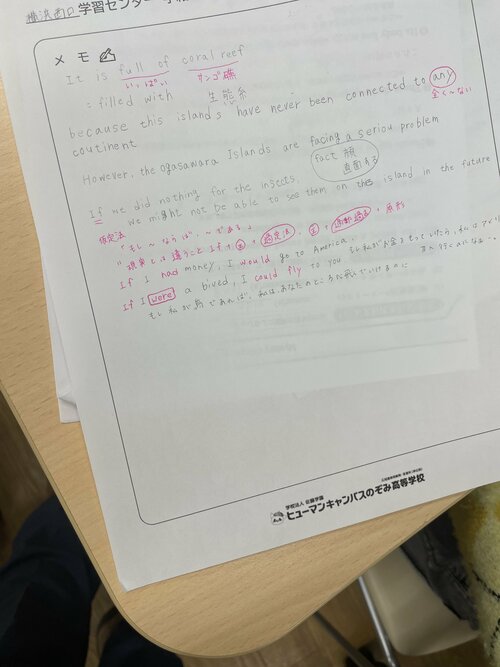 横浜西の学習センター
メモ
It is full of coral reef
いっぱい サンゴ礁
= filled with 生態系
because this islands have never been connected to any
coutinent 全く〜ない
However, the ogasawara Islands are facing a seriou problem
fact 顔
直面ある
If we did nothing for the insects,
we might not be able to see them on the island in the future
仮定法
"もし〜ならば、〜である"
現実とは違うこと If + 主 + 過去 , 主 + 助動過去 + 原形
If I had money, I would go to America. もし私がお金をもっていたら、私はアメリ
If I were a bived, I could fly to you
もし私が鳥であれば、私はあなたのところに飛んでいけるのに
学校法人 佐藤学園
ヒューマンキャンパスのぞみ高等学校